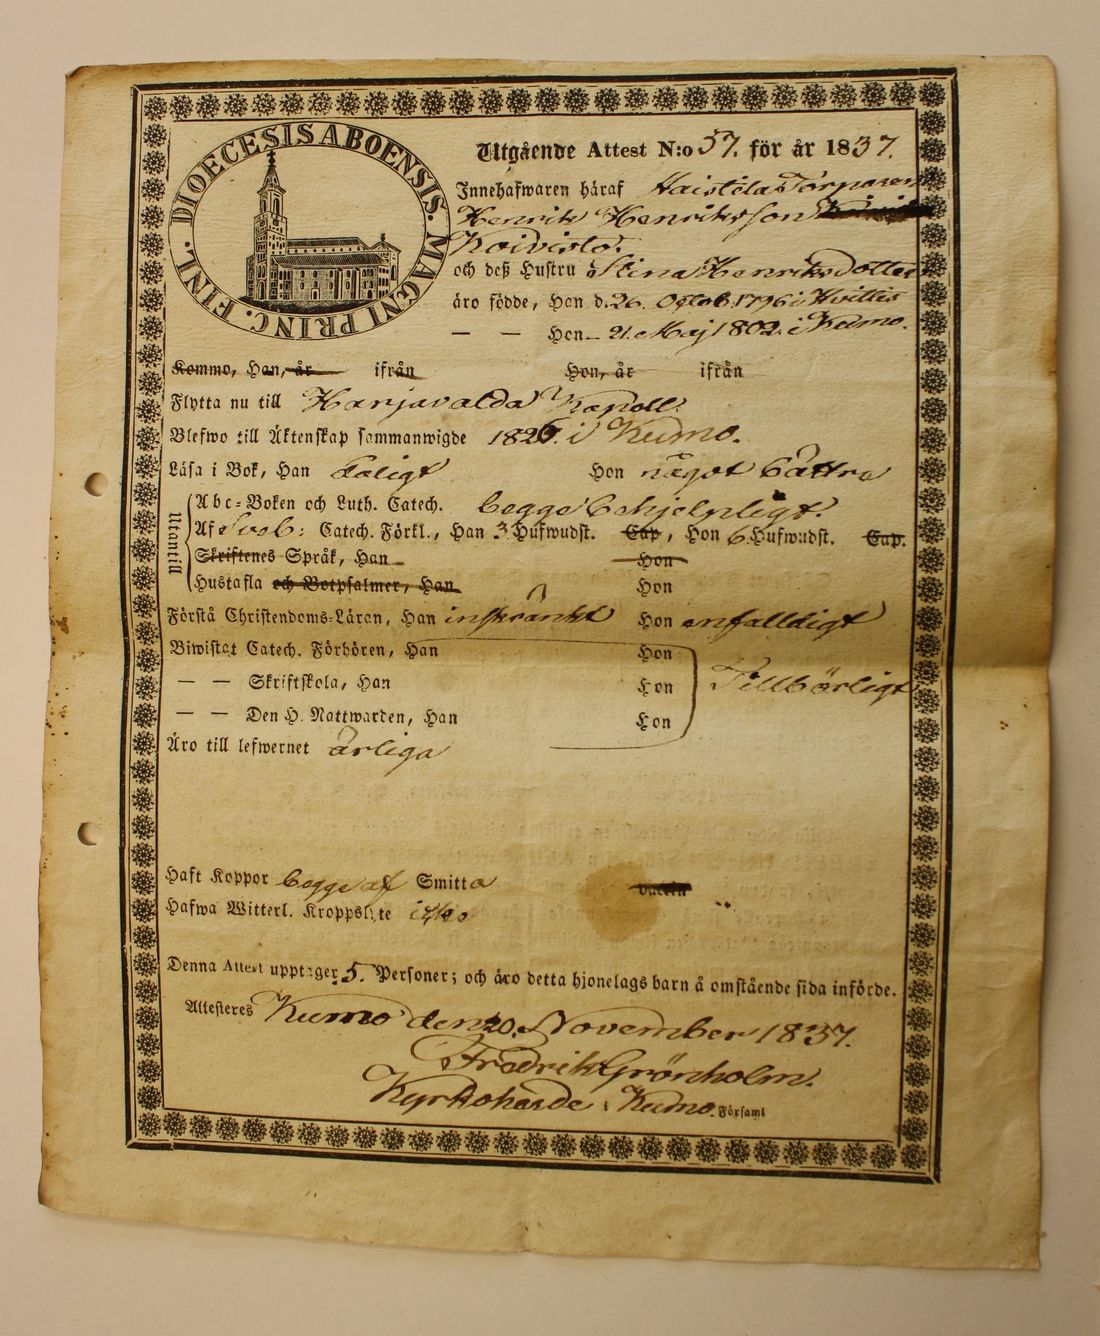 DIOECESIS ABOENSIS. MAGNI PRINC. FINL.
Utgående Attest N:o 57. för år 1837.
Innehafwaren häraf Haistila Torparen
Henrik Henriksson
Koivisto.
och deß Hustru Stina Henriksdotter
äro födde, Han d. 26. Octob. 1796 i Hvittis
— — Hon – 21. Maj 1802. i Kumo.
Kommo, Han, år ifrån Hon, år ifrån
Flytta nu till Harjavalda Kapell.
Blefwo till Äktenskap sammanwigde 1826. i Kumo.
Läsa i Bok, Han Galigt Hon något bättre
Utantill
Abc-Boken och Luth. Catech. begge behjelpligt.
Af Sveb: Catech. Förkl., Han 3 Hufwudst. Cap, Hon 6 Hufwudst. Cap.
Skriftenes Språk, Han Hon
Hustafla och Botpsalmer, Han Hon
Förstå Christendoms-Läran, Han inskränkt Hon enfalldigt
Biwistat Catech. Förhören, Han Hon
— — Skriftskola, Han Hon Tillbörligt
— — Den H. Nattwarden, Han Hon
Äro till lefwernet ärliga
Haft Koppor begge af Smitta vaccin
Hafwa Witterl. Kroppslyte icke
Denna Attest upptager 5. Personer; och äro detta hjonelags barn å omstående sida införde.
Attesteres Kumo den 20. November 1837.
Fredrik Grönholm.
Kyrkoherde i Kumo. Församl